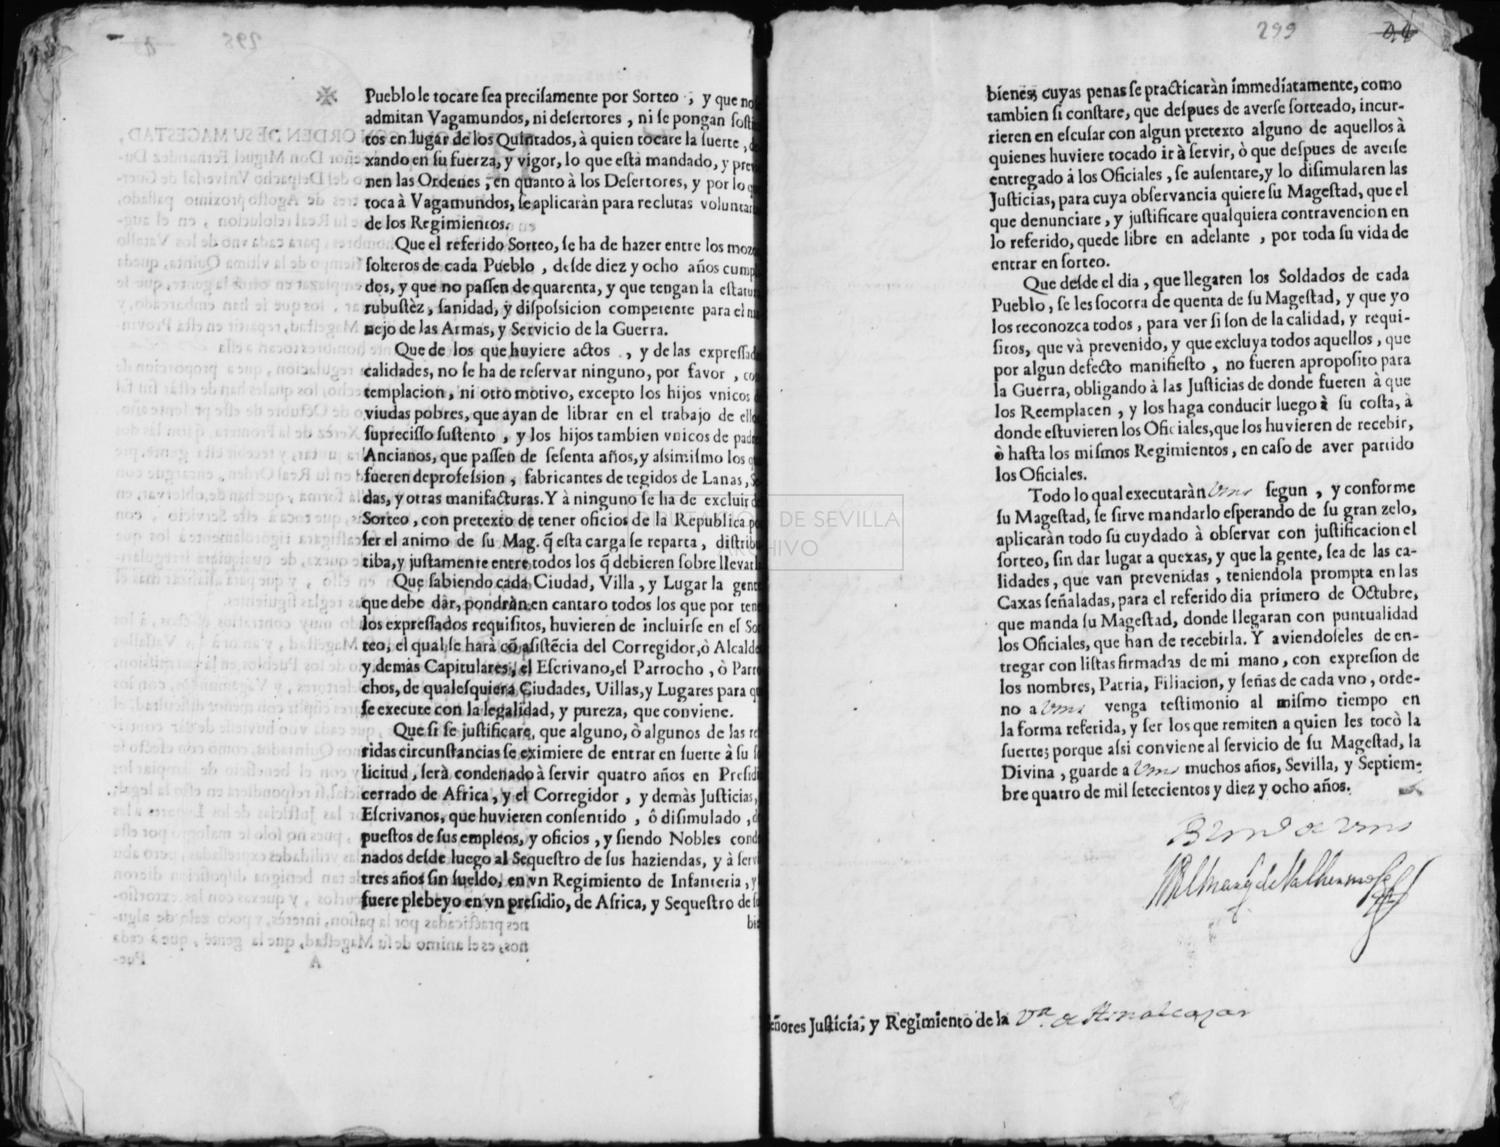 299
Pueblo le tocare sea precisamente por Sorteo, y que no
admitan Vagamundos, ni desertores, ni se pongan sosti
tos en lugar de los Quintados, à quien tocare la suerte,
xando en su fuerza, y vigor, lo que està mandado, y pre
nen las Ordenes, en quanto à los Desertores, y por lo q
toca à Vagamundos, se aplicaràn para reclutas voluntar
de los Regimientos.
Que el referido Sorteo, se ha de hazer entre los mozo
solteros de cada Pueblo, desde diez y ocho años cump
dos, y que no passen de quarenta, y que tengan la estatu
rubustèz, sanidad, y disposicion competente para el m
nejo de las Armas, y Servicio de la Guerra.
Que de los que huviere actos, y de las expressad
calidades, no se ha de reservar ninguno, por favor, co
templacion, ni otro motivo, excepto los hijos vnicos
viudas pobres, que ayan de librar en el trabajo de ello
su precisso sustento, y los hijos tambien vnicos de padr
Ancianos, que passen de sesenta años, y assimismo los q
fueren de profession, fabricantes de tegidos de Lanas, S
das, y otras manifacturas. Y à ninguno se ha de excluir d
Sorteo, con pretexto de tener oficios de la Republica p
ser el animo de su Mag. q̃ esta carga se reparta, distribu
tiba, y justamente entre todos los q̃ debieren sobrellevarl
Que sabiendo cada Ciudad, Villa, y Lugar la gent
que debe dàr, pondràn en cantaro todos los que por ten
los expressados requisitos, huvieren de incluirse en el So
teo, el qual se harà cõ asistẽcia del Corregidor, ò Alcalde
y demàs Capitulares, el Escrivano, el Parrocho, ò Parro
chos, de qualesquiera Ciudades, Uillas, y Lugares para q
se execute con la legalidad, y pureza, que conviene.
Que si se justificare, que alguno, ò algunos de las re
ridas circunstancias se eximiere de entrar en suerte à su s
licitud, serà condenado à servir quatro años en Presid
cerrado de Africa, y el Corregidor, y demàs Justicias,
Escrivanos, que huvieren consentido, ò disimulado, d
puestos de sus empleos, y oficios, y siendo Nobles cond
nados desde luego al Sequestro de sus haziendas, y à serv
tres años sin sueldo, en vn Regimiento de Infanteria, y
fuere plebeyo en vn presidio, de Africa, y Sequestro de s
bie
bienes; cuyas penas se practicaràn immediatamente, como
tambien si constare, que despues de averse sorteado, incur-
rieren en escusar con algun pretexto alguno de aquellos à
quienes huviere tocado ir à servir, ò que despues de averse
entregado à los Oficiales, se ausentare, y lo disimularen las
Justicias, para cuya observancia quiere su Magestad, que el
que denunciare, y justificare qualquiera contravencion en
lo referido, quede libre en adelante, por toda su vida de
entrar en sorteo.
Que desde el dia, que llegaren los Soldados de cada
Pueblo, se les socorra de quenta de su Magestad, y que yo
los reconozca todos, para ver si son de la calidad, y requi-
sitos, que và prevenido, y que excluya todos aquellos, que
por algun defecto manifiesto, no fueren aproposito para
la Guerra, obligando à las Justicias de donde fueren à que
los Reemplacen, y los haga conducir luego à su costa, à
donde estuvieren los Oficiales, que los huvieren de recebir,
ò hasta los mismos Regimientos, en caso de aver partido
los Oficiales.
Todo lo qual executaràn Vms segun, y conforme
su Magestad, se sirve mandarlo esperando de su gran zelo,
aplicaràn todo su cuydado à observar con justificacion el
sorteo, sin dar lugar a quexas, y que la gente, sea de las ca-
lidades, que van prevenidas, teniendola prompta en las
Caxas señaladas, para el referido dia primero de Octubre,
que manda su Magestad, donde llegaran con puntualidad
los Oficiales, que han de recebirla. Y aviendoseles de en-
tregar con listas firmadas de mi mano, con expresion de
los nombres, Patria, Filiacion, y señas de cada vno, orde-
no a Vms venga testimonio al mismo tiempo en
la forma referida, y ser los que remiten a quien les tocò la
suerte; porque assi conviene al servicio de su Magestad, la
Divina, guarde a Vms muchos años, Sevilla, y Septiem-
bre quatro de mil setecientos y diez y ocho años.
El Marqs de Valhermoso
eñores Justicia, y Regimiento de la Va. de Aznalcazar
DIPUTACIÓN DE SEVILLA
ARCHIVO